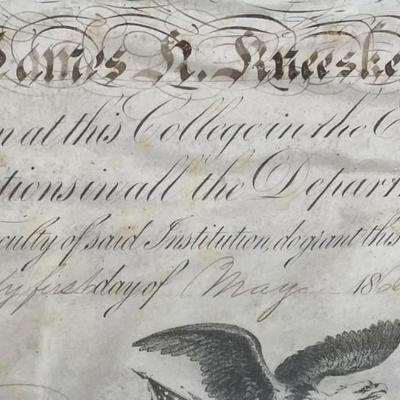 James H. Kneeske
n at this College in the C
tions in all the Departm
aculty of said Institution, do grant this
ty first day of May 186